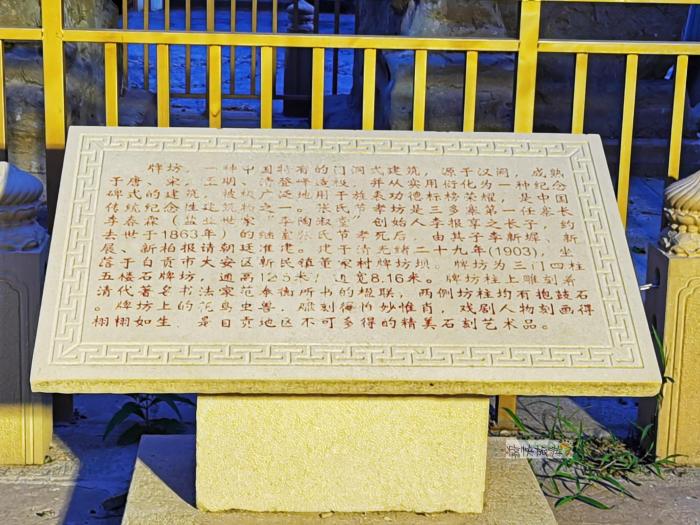 牌坊，一种中国特有的门洞式建筑，源于汉阙，成熟
于唐、宋，至明、清登峰造极，并从实用衍化为一种纪念
碑式的建筑，被极广泛地用于旌表功德标榜荣耀，是中国
传统纪念性建筑物之一。张氏节孝坊是三多寨第一任寨长
李春霖（盐业世家“李陶淑堂”创始人李报享之长子，约
去世于1863年）的继室张氏节孝死后，由其子李新墀、新
展、新柏报请朝廷准建。建于清光绪二十九年(1903)，坐
落于自贡市大安区新民镇董家村牌坊坝。牌坊为三门四柱
五楼石牌坊，通高12.5米，通宽8.16米。牌坊柱上雕刻着
清代著名书法家范泰衡所书的楹联，两侧坊柱均有抱鼓石
。牌坊上的花鸟虫兽，雕刻得惟妙惟肖，戏剧人物刻画得
栩栩如生，是自贡地区不可多得的精美石刻艺术品。